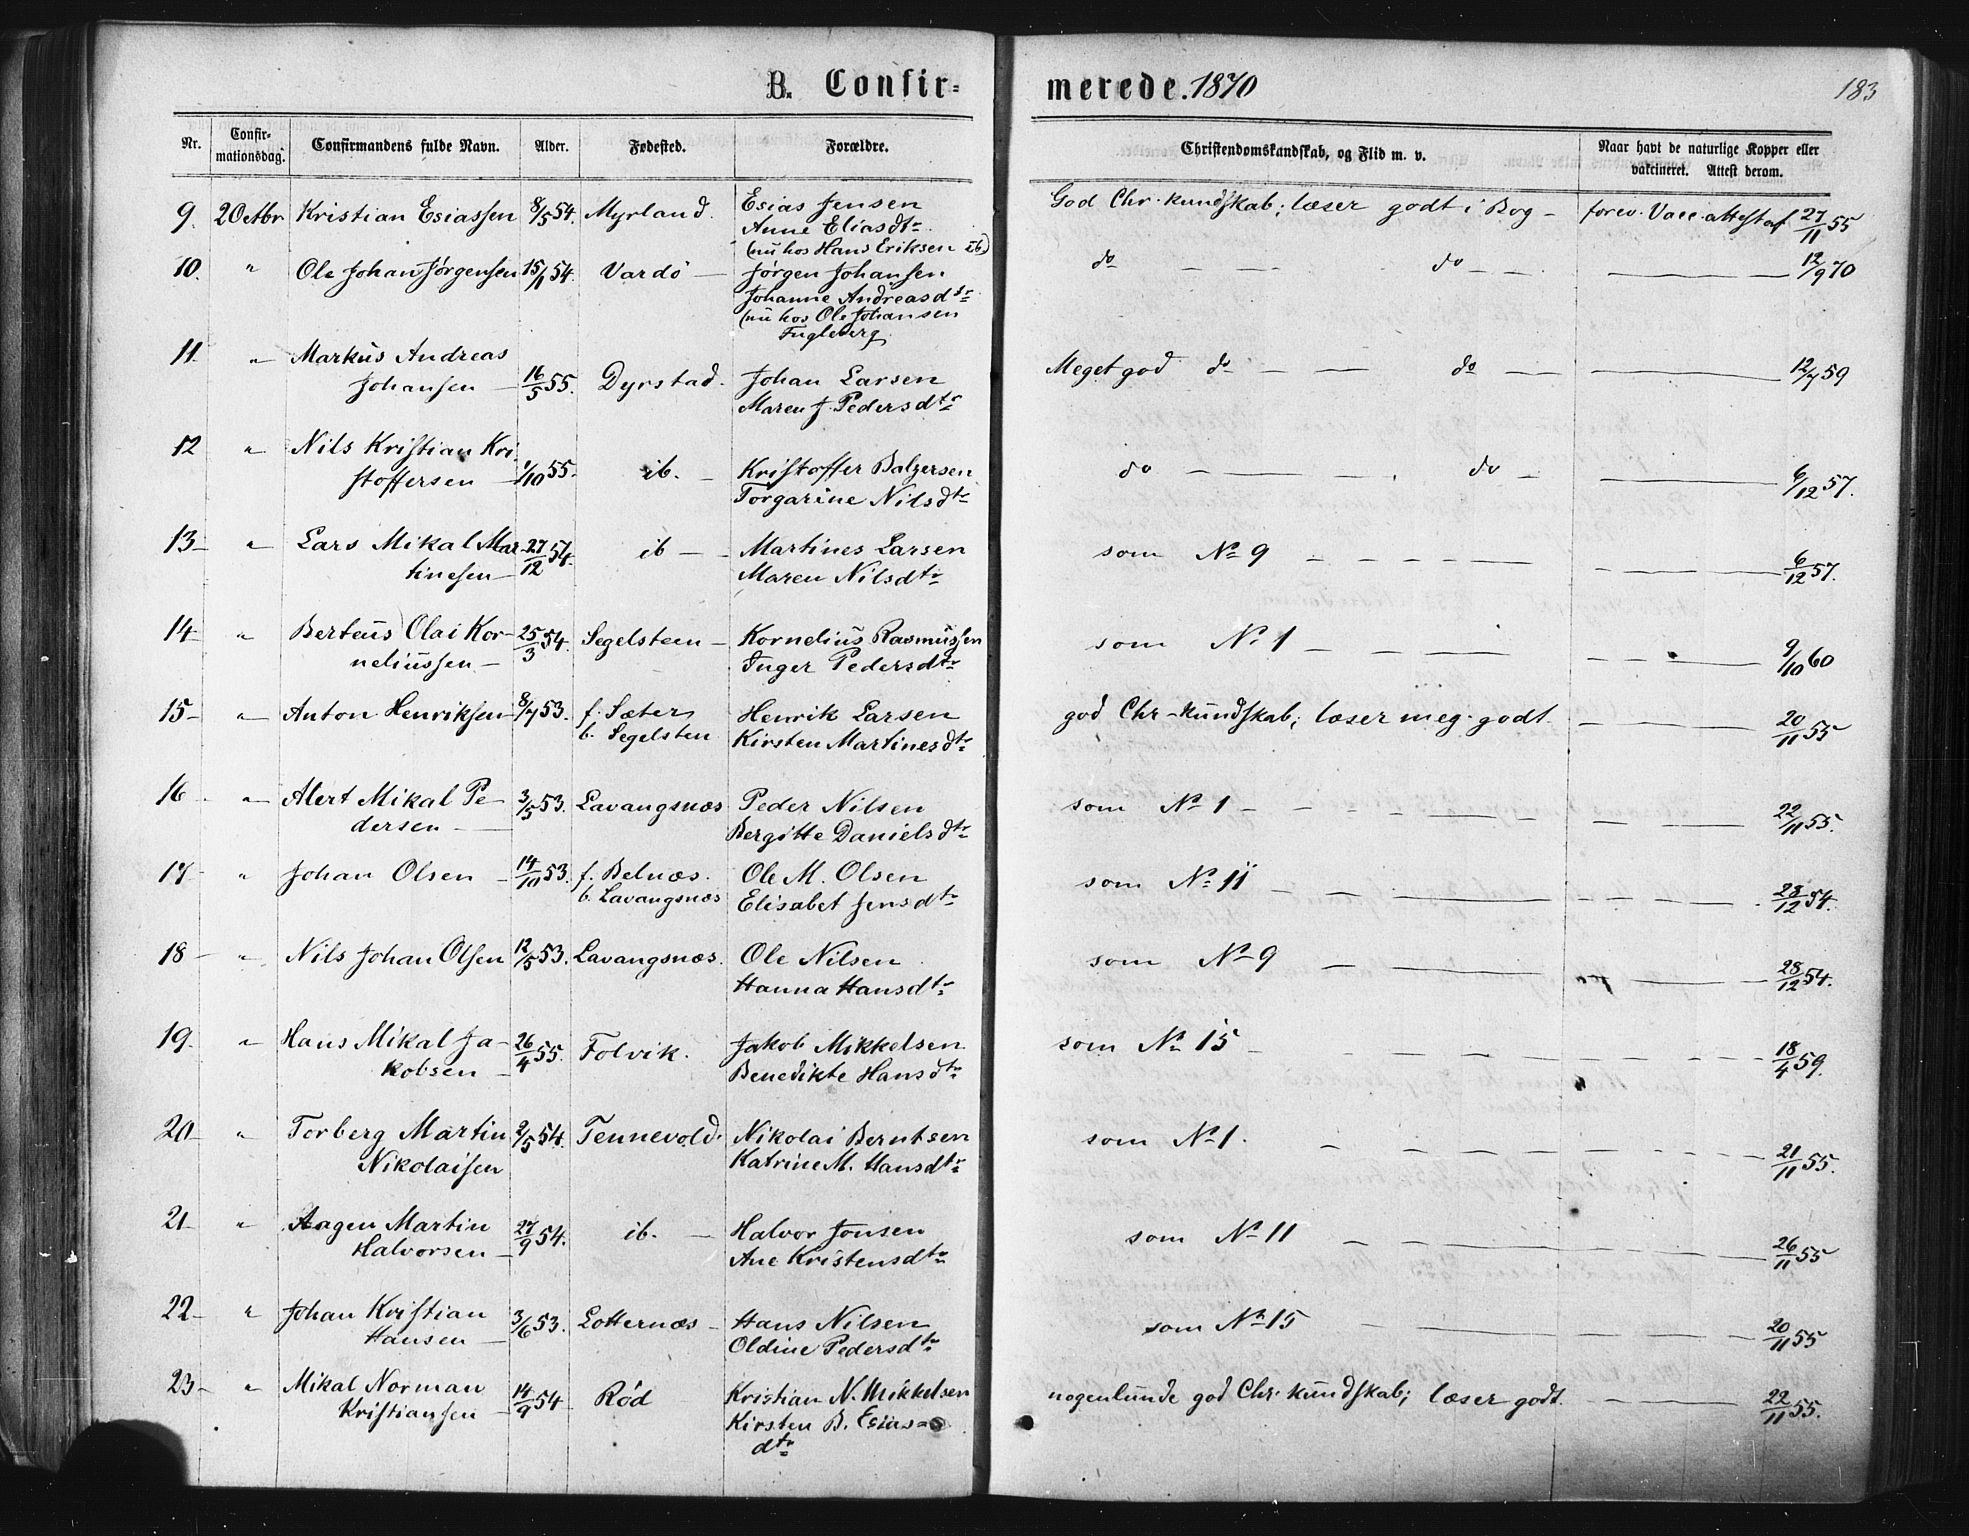 B. Confir-
merede. 1870
183
Nr.
Confir-
mationsdag.
Confirmandens fulde Navn.
Alder.
Fødested.
Forældre.
Christendomskundskab, og Flid m. v.
Naar havt de naturlige Kopper eller
vakcineret. Attest derom.
9. 2 Octbr Kristian Esiassen 8/5 54. Myrland. Esias Jensen God Chr. kundskab; læser godt i Bog - forev. Vacc. attest af 27/11 55
Anne Eliasdtr
(nu hos Hans Eriksen ib)
10. " Ole Johan Jørgensen 15/1 54. Vardö Jørgen Johansen do do 12/9 70
Johanne Andreasdtr
(nu hos Ole Johansen
Fugleberg
11. " Markus Andreas
Johansen 16/5 55. Dyrstad. Johan Larsen Meget god do do 12/7 59
Maren J. Pedersdtr
12 " Nils Kristian Kri-
stoffersen 1/10 55. ib. Kristoffer Balzersen do do 6/12 57.
Torgarine Nilsdtr
13 " Lars Mikal Mar- 27/12 54. ib Martines Larsen som No 9 6/12 57.
tinesen Maren Nilsdtr
14 " Berteus Olai Kor- 25/3 54. Segelsteen Kornelius Rasmussen som No 1 9/10 60
neliussen Inger Pedersdtr
15 " Anton Henriksen 8/7 53. f. Sæter Henrik Larsen god Chr-kundskab; læser meg. godt 20/11 55
b. Segelsten Kirsten Martinesdtr
16 " Alert Mikal Pe- 3/5 53. Lavangsnæs Peder Nilsen som No 1 22/11 55.
dersen Bergitte Danielsdtr
17 " Johan Olsen 14/10 53. f. Belnæs. Ole M. Olsen som No 11 28/12 54.
b. Lavangsnæs Elisabet Jensdtr
18 " Nils Johan Olsen 12/5 53. Lavangsnæs. Ole Nilsen som No 9 28/12 54.
Hanna Hansdtr
19. " Hans Mikal Ja- 26/4 55. Folvik. Jakob Mikkelsen som No 15 18/4 59.
kobsen Benedikte Hansdtr
20 " Torberg Martin 2/5 54. Tennevold. Nikolai Berntsen som No 1. 21/11 55.
Nikolaisen Katrine M. Hansdtr
21 " Aagen Martin 27/9 54. ib. Halvor Jonsen som No 11 26/11 55
Halvorsen Ane Kristensdtr
22 " Johan Kristian 3/6 53. Lotternæs Hans Nilsen som No 15 20/11 55
Hansen Oldine Pedersdtr
23 " Mikal Norman 14/9 54 Röd Kristian N. Mikkelsen nogenlunde god Chr. kundskab; læser godt. 22/11 55.
Kristiansen Kirsten B. Esias=
dtr